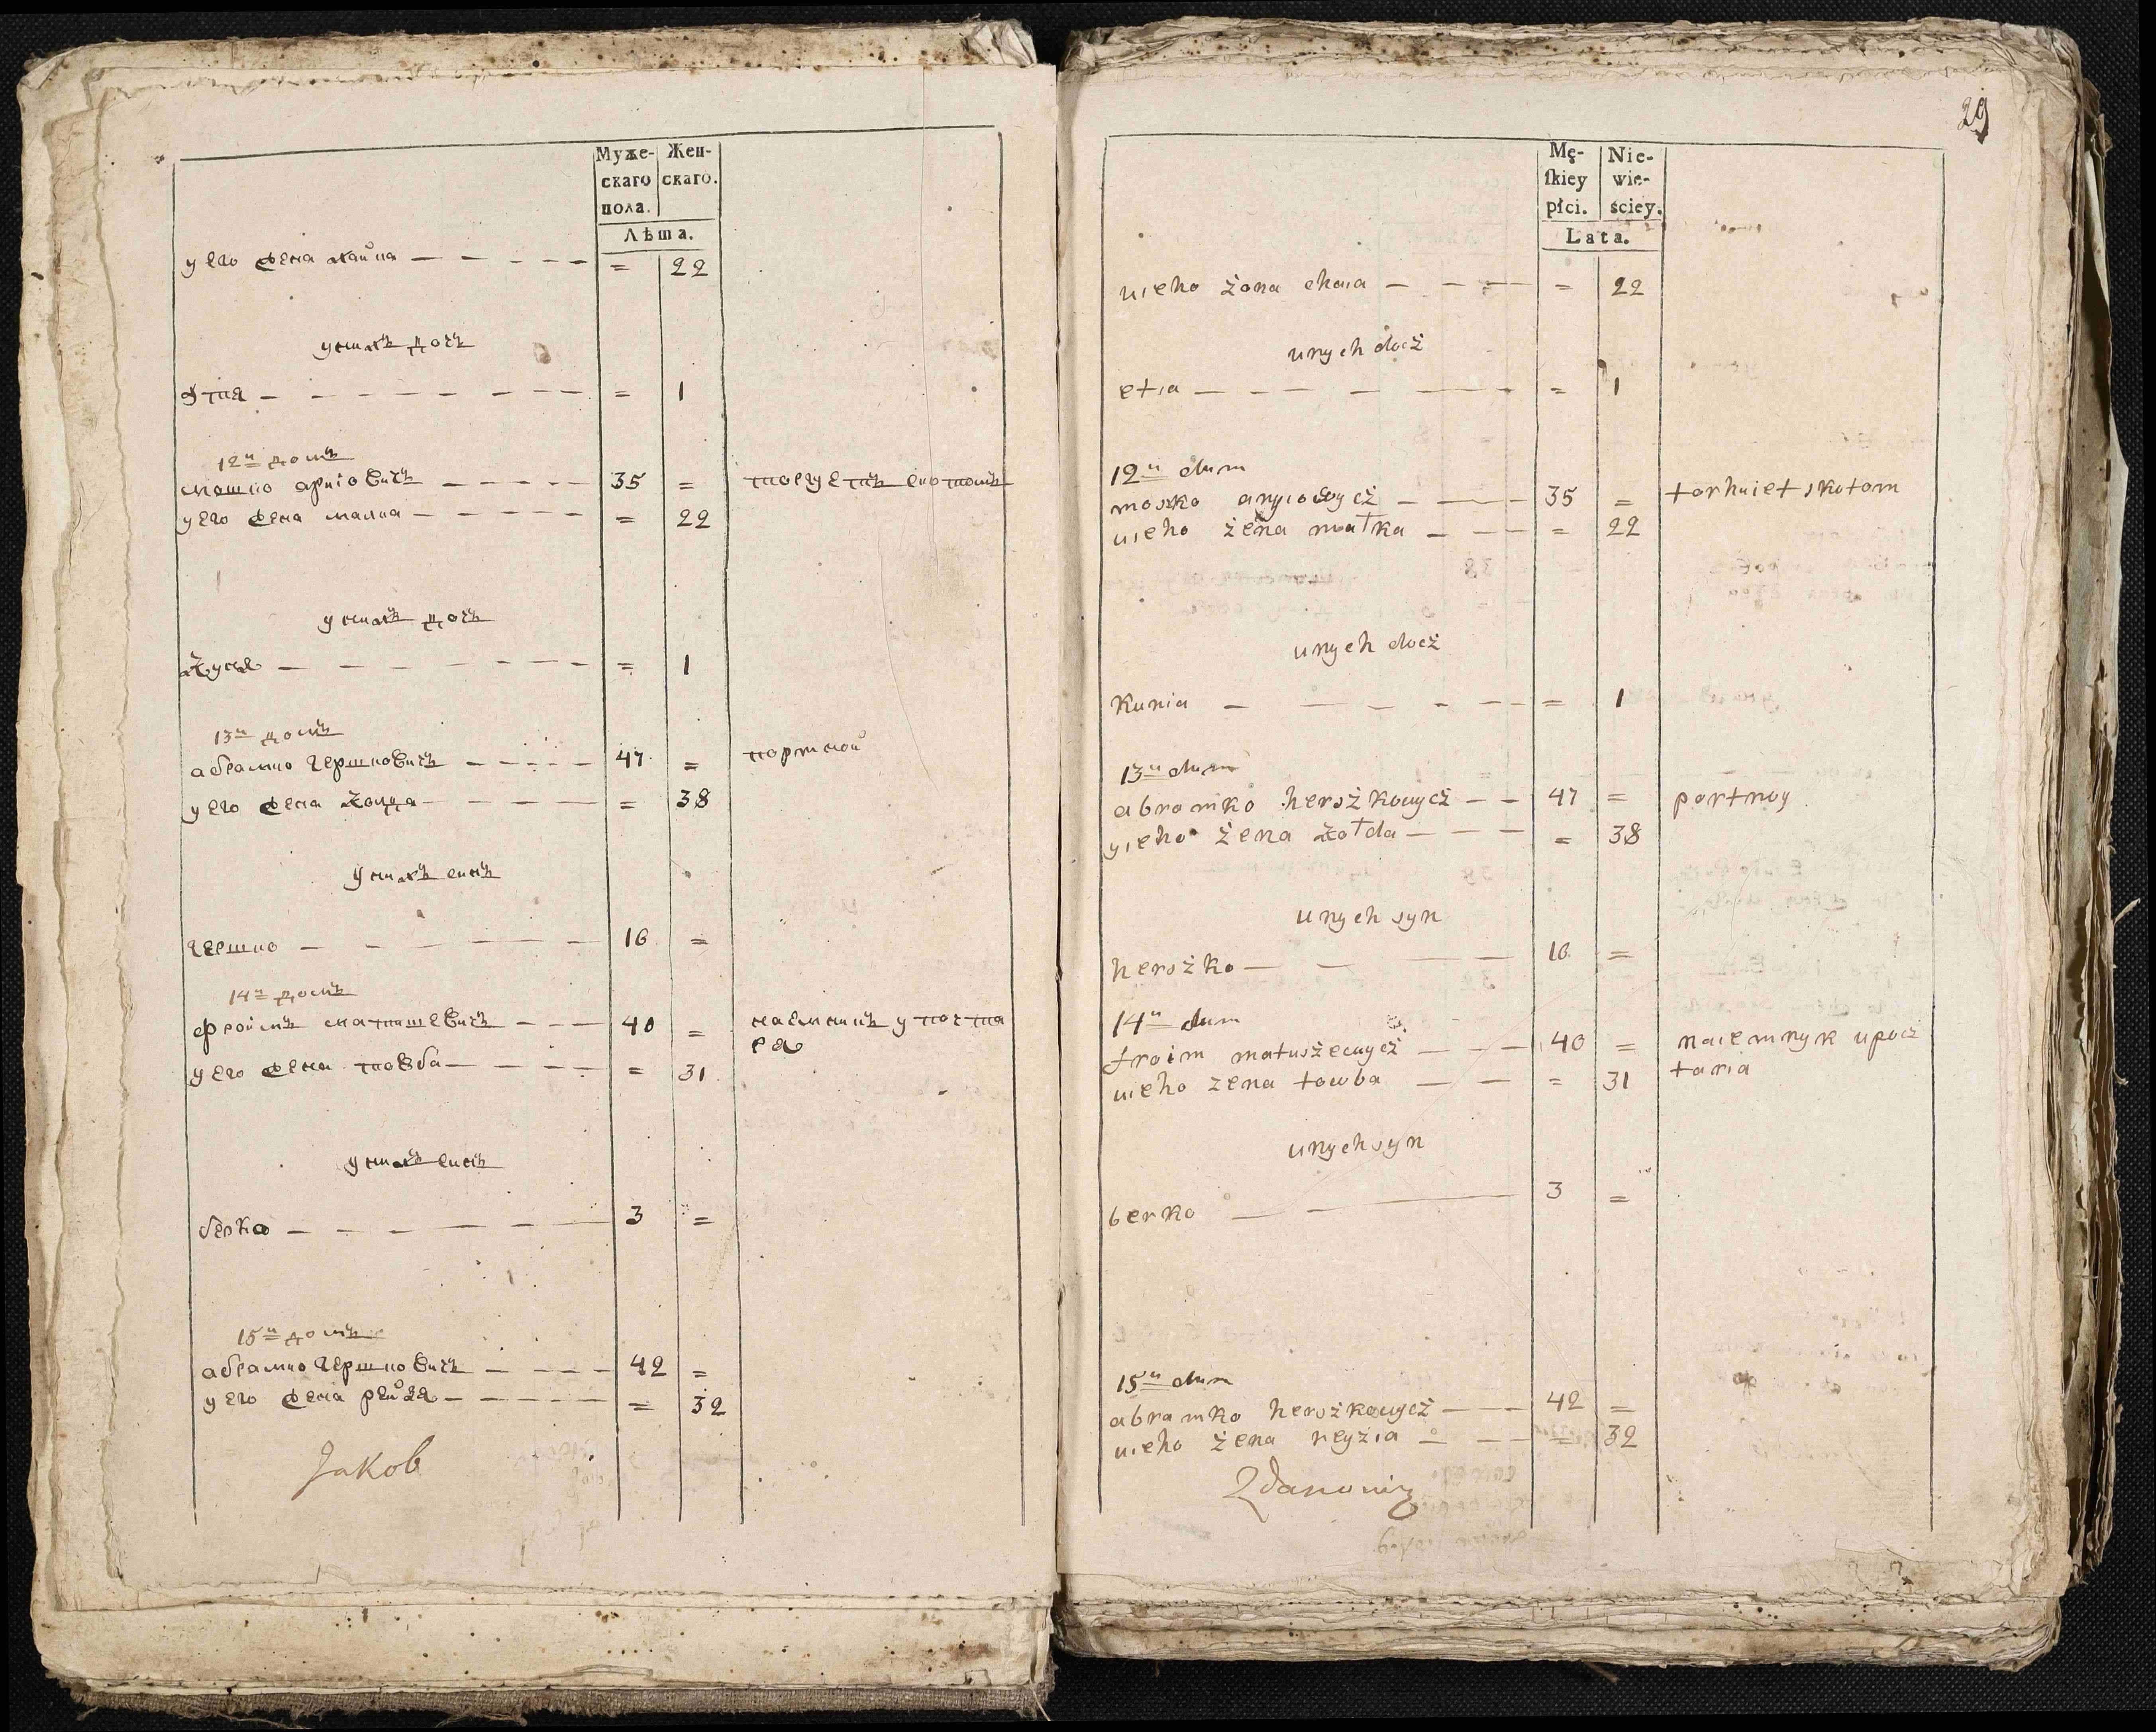 Муже-
скаго
пола.
Жен-
скаго.
Лѣта.
у его жена хайка — — — — = 22
у нихъ дочъ
этя — — — — — — = 1
12й домъ
мошко ариовичъ — — — 35 = торгуетъ скотомъ
у его жена малка — — — = 22
у нихъ дочъ
куня — — — — — — = 1
13й домъ
абрамко гершковичъ — — — 47 = портной
у его жена золда — — — = 38
у нихъ синъ
гершко — — — — — 16 =
14й домъ
фроимъ матушевичъ — — — 40 = наемникъ у почта
ря
у его жена товба — — — = 31
у нихъ синъ
берко — — — — — 3 =
15й домъ
абрамко гершковичъ — — — 42 =
у его жена рейзя — — — = 32
Jakob
29
Mę-
ſkiey
płci.
Nie-
wie-
ściey.
Lata.
uieho żona chaia — — — = 22
unych docż
etia — — — — — = 1
12й dum
moszko aryiowycż — — 35 = torhuiet skotom
uieho żena małka — — = 22
unych docż
kunia — — — — — = 1
13й dum
abramko herszkowycż — — 47 = portnoy
yieho żena zołda — — — = 38
unych syn
herszko — — — — 16 =
14й dum
froim matuszewycż — — — 40 = naiemnyk upocz
taria
uieho zena towba — — = 31
unych syn
berko — — — 3 =
15й dum
abramko herszkowycż — — 42 =
uieho żena reyzia — — — = 32
Zdanowicz